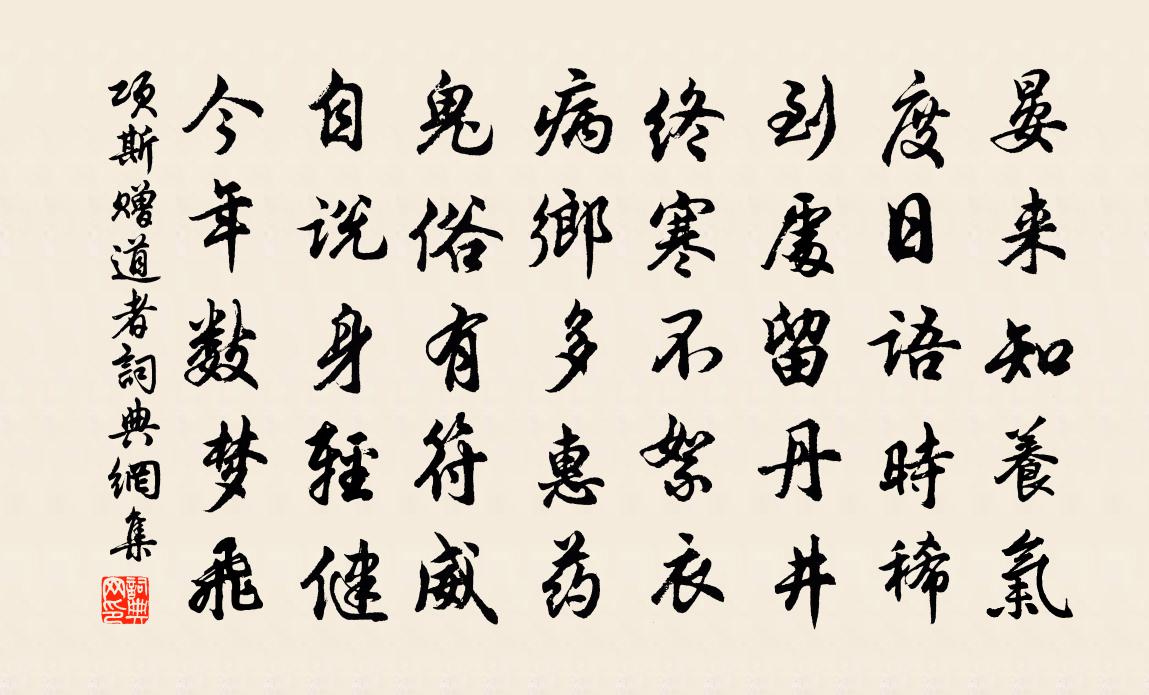 晏来知養氣
度日語時稀
到處留丹井
终寒不絮衣
病鄉多惠药
鬼俗有符威
自说身輕健
今年數梦飛
项斯赠道者詞典網集
詞典网印